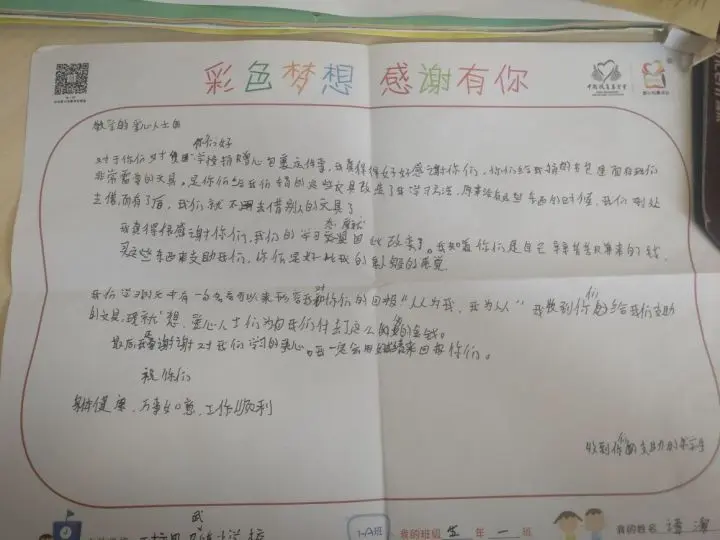 彩色梦想 感谢有你
中国扶贫基金会
敬爱的爱心人士们
你们好
对于你们对贫困学校捐赠爱心包裹这件事，我真得得好好感谢你们，你们给我捐的书包里面有我们
非常需要的文具，是你们给我们捐的这些文具改变了我学习方法，原来没有这些东西的时候，我们到处
去借，而有了后，我们就不用去借别人的文具了
我真得很感谢你们，我们的学习态度就因此改变了。我知道你们是自己辛辛苦苦攒来的钱，
买这些东西来支助我们，你们是好比我的
我们学习的文中有一句名言可以来形容我对你们的回报“人人为我，我为人人”我收到你们给我们支助
的文具，现就想，爱心人士们为何我们付出了这么多的金钱。
最后我要谢谢对我们学习的爱心。我一定会用好成绩来回报你们。
祝你们
身体健康，万事如意，工作顺利
收到你们支助的学生
1-A班
我的班级 五 年 一 班
我的姓名 谭